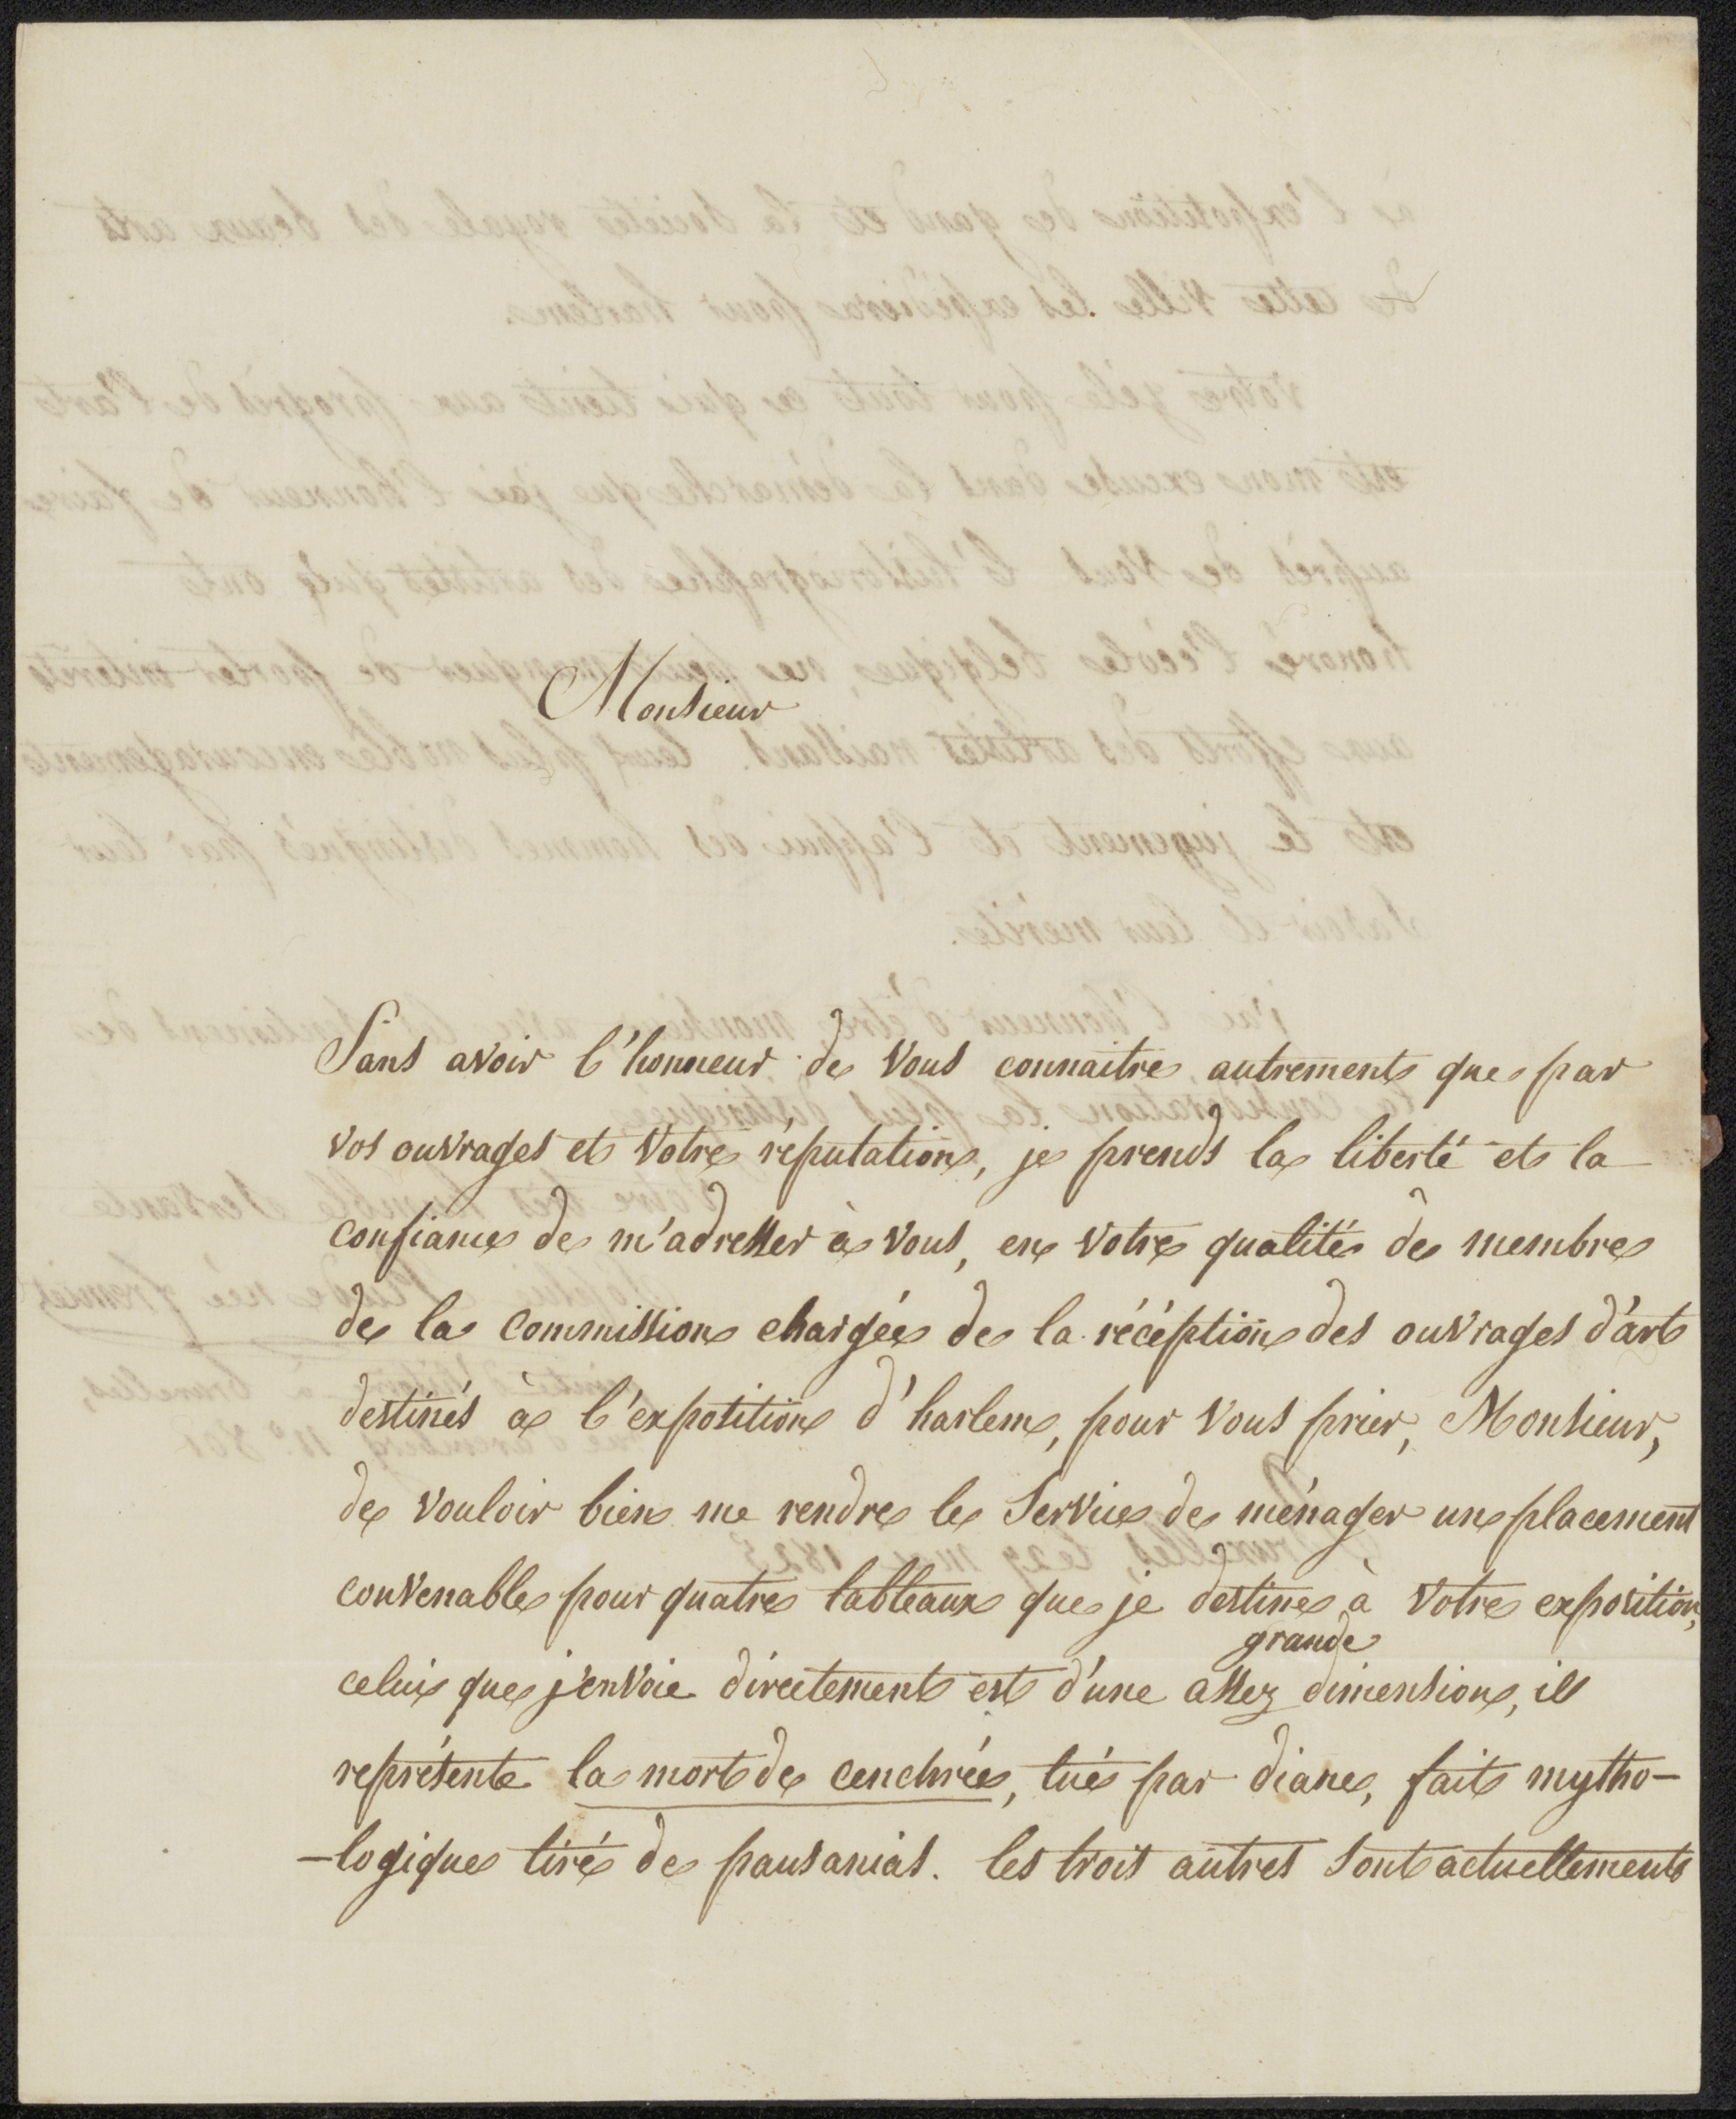 Monsieur
Sans avoir l'honneur de Vous connaitre autrement que par
vos ouvrages et Votre réputation, je prends la liberté et la
confiance de m'adresser à Vous, en Votre qualité de membre
de la Commission chargée de la récéption des ouvrages d'art
destinés à l'exposition d'harlem, pour Vous prier, Monsieur,
de Vouloir bien me rendre le Service de ménager un placement
convenable pour quatre tableaux que je destine à Votre exposition,
grande
celui que j'envoie directement est d'une assez dimension, il
représente la mort de cenchrée, tué par diane, fait mytho-
-logique tiré de pausanias. les trois autres Sont actuellement